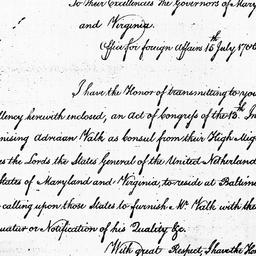 To Their Excellencies The Governors of Mary
and Virginia.
Office for foreign Affairs 15th July 178
I have the Honor of transmitting to you
llency herewith enclosed, an Act of Congress of the 13th In
nising Adriaan Valk as Consul from their High Migh
es the Lords, the States General of the United Netherland
States of Maryland and Virginia, to reside at Baltim
calling upon those States to furnish Mr Valk with the
quatur or Notification of his Quality &c.
With great Respect, I have the Hon